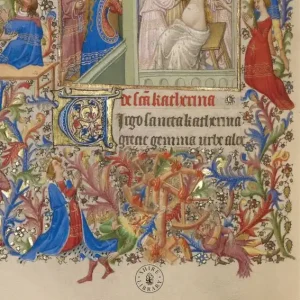 de scā katherina
Virgo sancta katherina
grecie gemma urbe alex